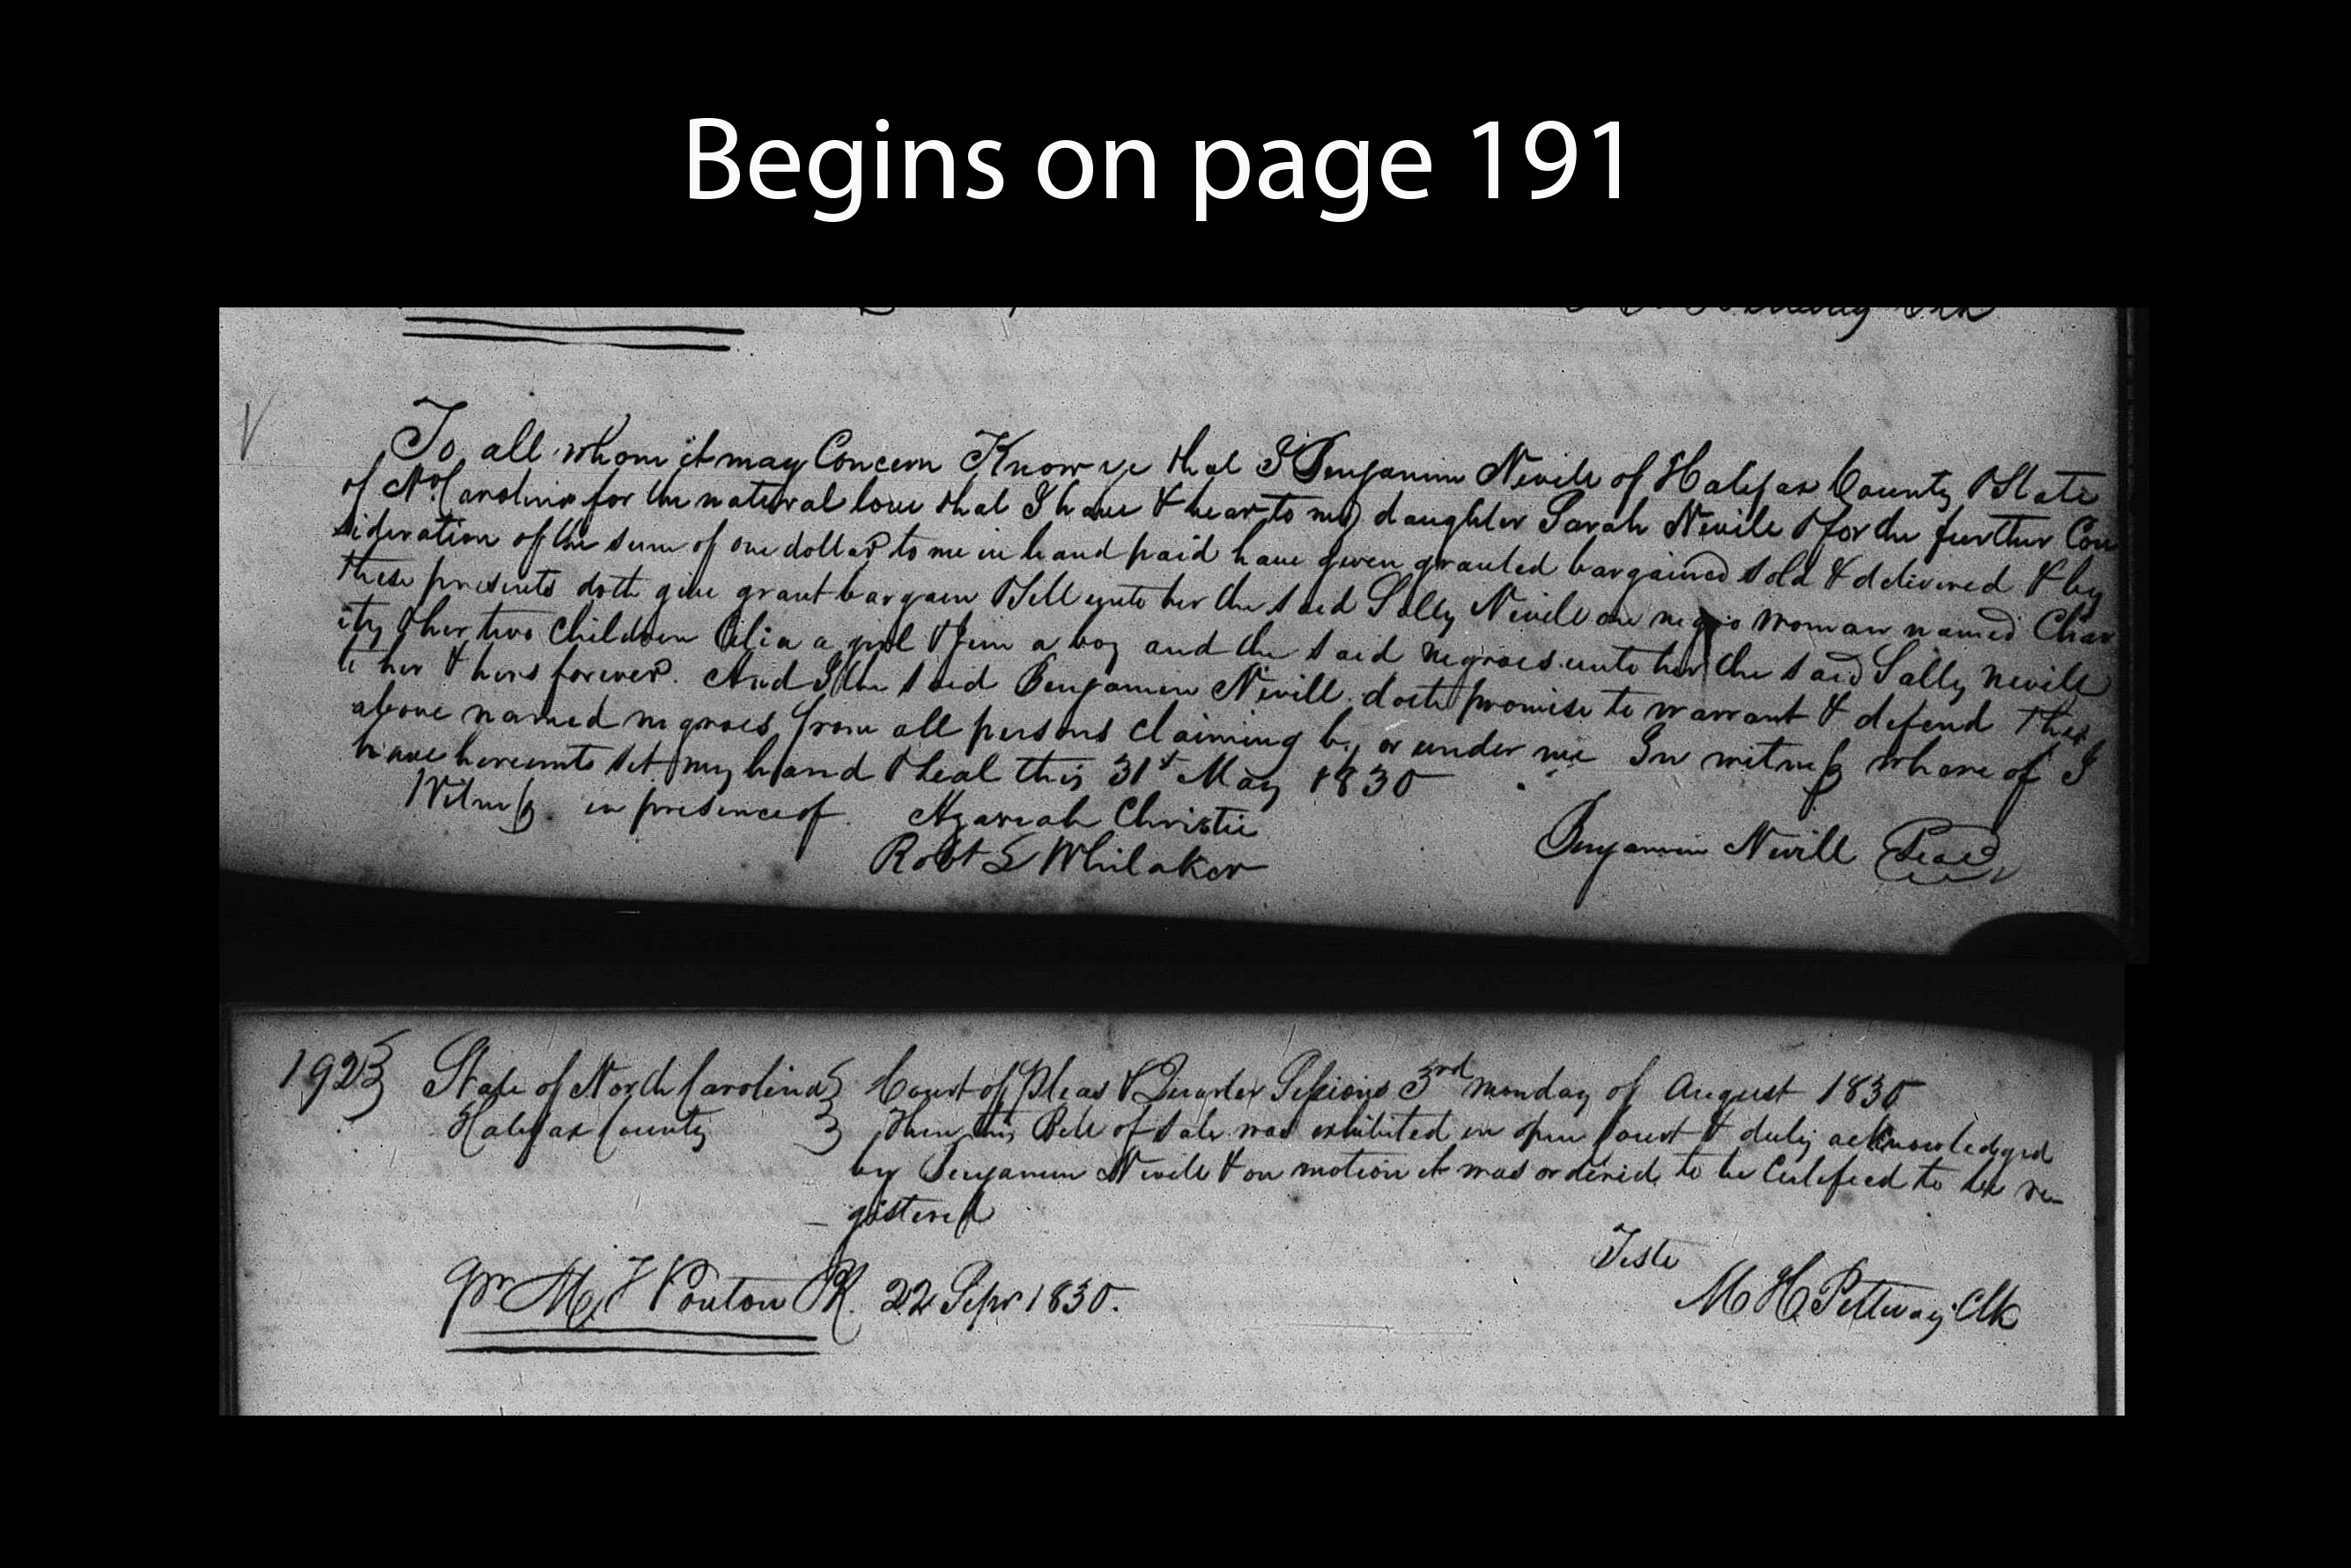 Begins on page 191
To all whom it may Concern Know ye that I Benjamin Nevill of Halifax County & State
of No. Carolina for the natural love that I have & bear to my daughter Sarah Nevill & for the further Con
sideration of the sum of one dollar to me in hand paid have given granted bargained sold & delivered & by
these presents doth give grant bargain & Sell unto her the said Sally Nevill one negro woman named Char
ity & her two Children Celia a girl & Jim a boy and the said negroes unto her the said Sally Nevill
to her & hers forever. And I the said Benjamin Nevill doth promise to warrant & defend the
above named negroes from all persons claiming by or under me In witness where of I
have hereunto set my hand & seal this 31st May 1830
Witness in presence of Azariah Christie
Robt L Whitaker
Benjamin Nevill Seal
192 State of North Carolina Court of Pleas & Quarter Sessions 3rd monday of August 1830
Halifax County Then this Bill of sale was exhibited in open Court & duly acknowledged
by Benjamin Nevill & on motion it was ordered to be Certified to be re-
gistered
Teste
pr M, T Ponton PR. 22 Sepr 1830.
M H Pettway Clk